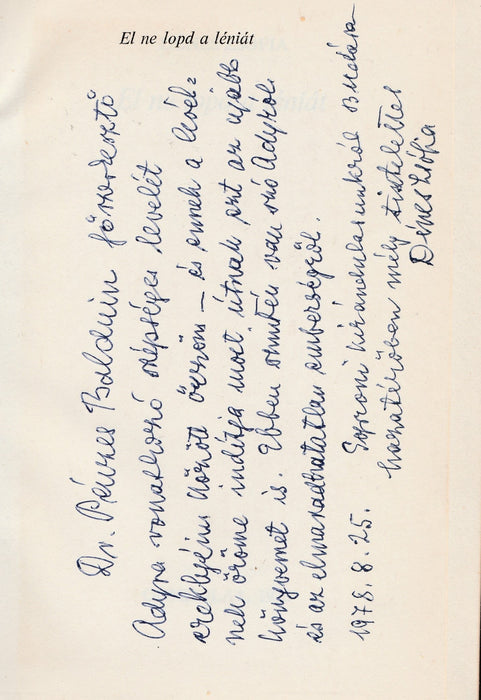 El ne lopd a léniát
Dr. Pénzes Balduin főszerkesztő
Adyra vonatkozó szépséges levelét
ereklyéim között őrzöm — és ennek a levél=
nek öröme indítja most útnak ezt az újabb
könyvemet is. Ebben szintén van szó Adyról
és az elmaradhatatlan emberségről.
Soproni kirándulásunkról Budára
hazatérőben mély tisztelettel
1978. 8. 25.
Dénes Zsófia